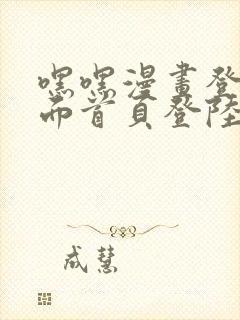 嘿嘿漫畫登
而首頁登陸
成慧